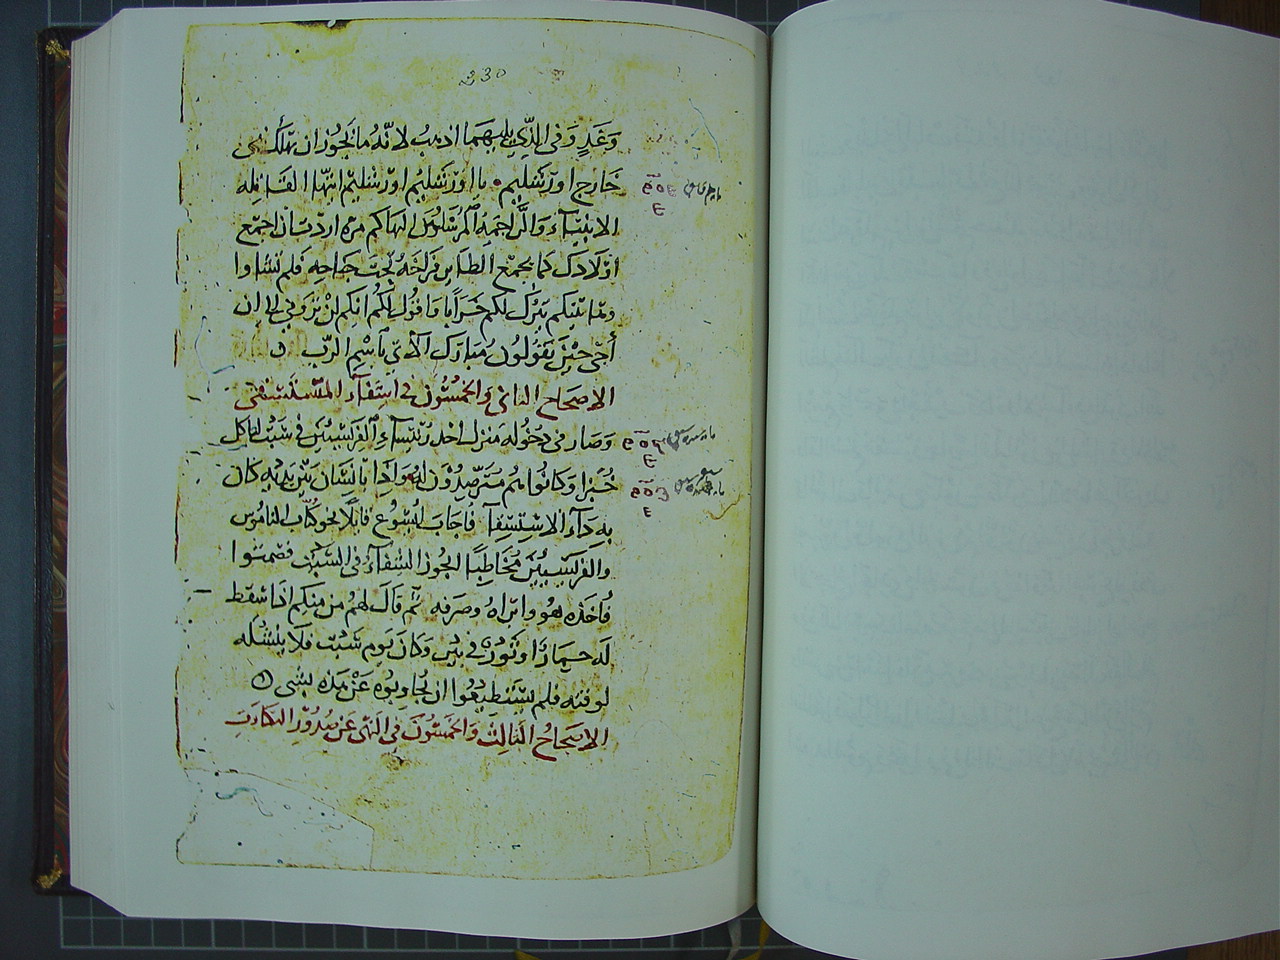 230
وَغَدٍ وَفي الذي يليهما اذهب لانه ما يجوز ان يهلك نبي
خارج اورشليم يا اورشليم اورشليم ايتها القاتله
الانبياء والراجمه المرسلين اليها كم مره اردت ان اجمع
اولادك كما يجمع الطاير فراخه تحت جناحه فلم تشاوا
وها بيتكم يترك لكم خرابا واقول لكم انكم لن تروني الى ان
أجى حين يقولون مبارك الآتي باسم الرب
الاصحاح الثاني والخمسون في استفآء
وصار في دخوله منزل احد رئيساء الفريسيين في سبت لياكل
خبزا وكانوا هم مترصدون له واذا بانسان بين يديه كان
به دآء الاستسقآ فاجاب ايسوع قايلا نحو كتاب الناموس
والفريسيين مخاطبا ايجوز الشفآء في السبت فصمتوا
فاخذه هو وابراه وصرفه ثم قال لهم من منكم اذا سقط
له حمار او ثور في بير وكان يوم سبت فلا ينشله
لوقته فلم يستطيعوا ان يجاوبوه عن هذه بشي
الاصحاح الثالث والخمسون في النهي عن صدور المكادب